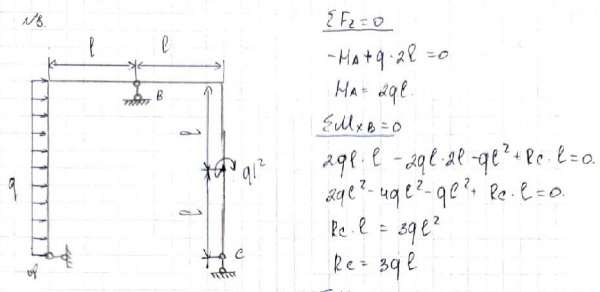 №3.
l l
B
l
ql²
q
l
A
C
ΣFz=0
-HA+q·2l=0
HA=2ql.
ΣMxB=0
2ql·l-2ql·2l-ql²+Rc·l=0.
2ql²-4ql²-ql²+Rc·l=0.
Rc·l=3ql²
Rc=3ql